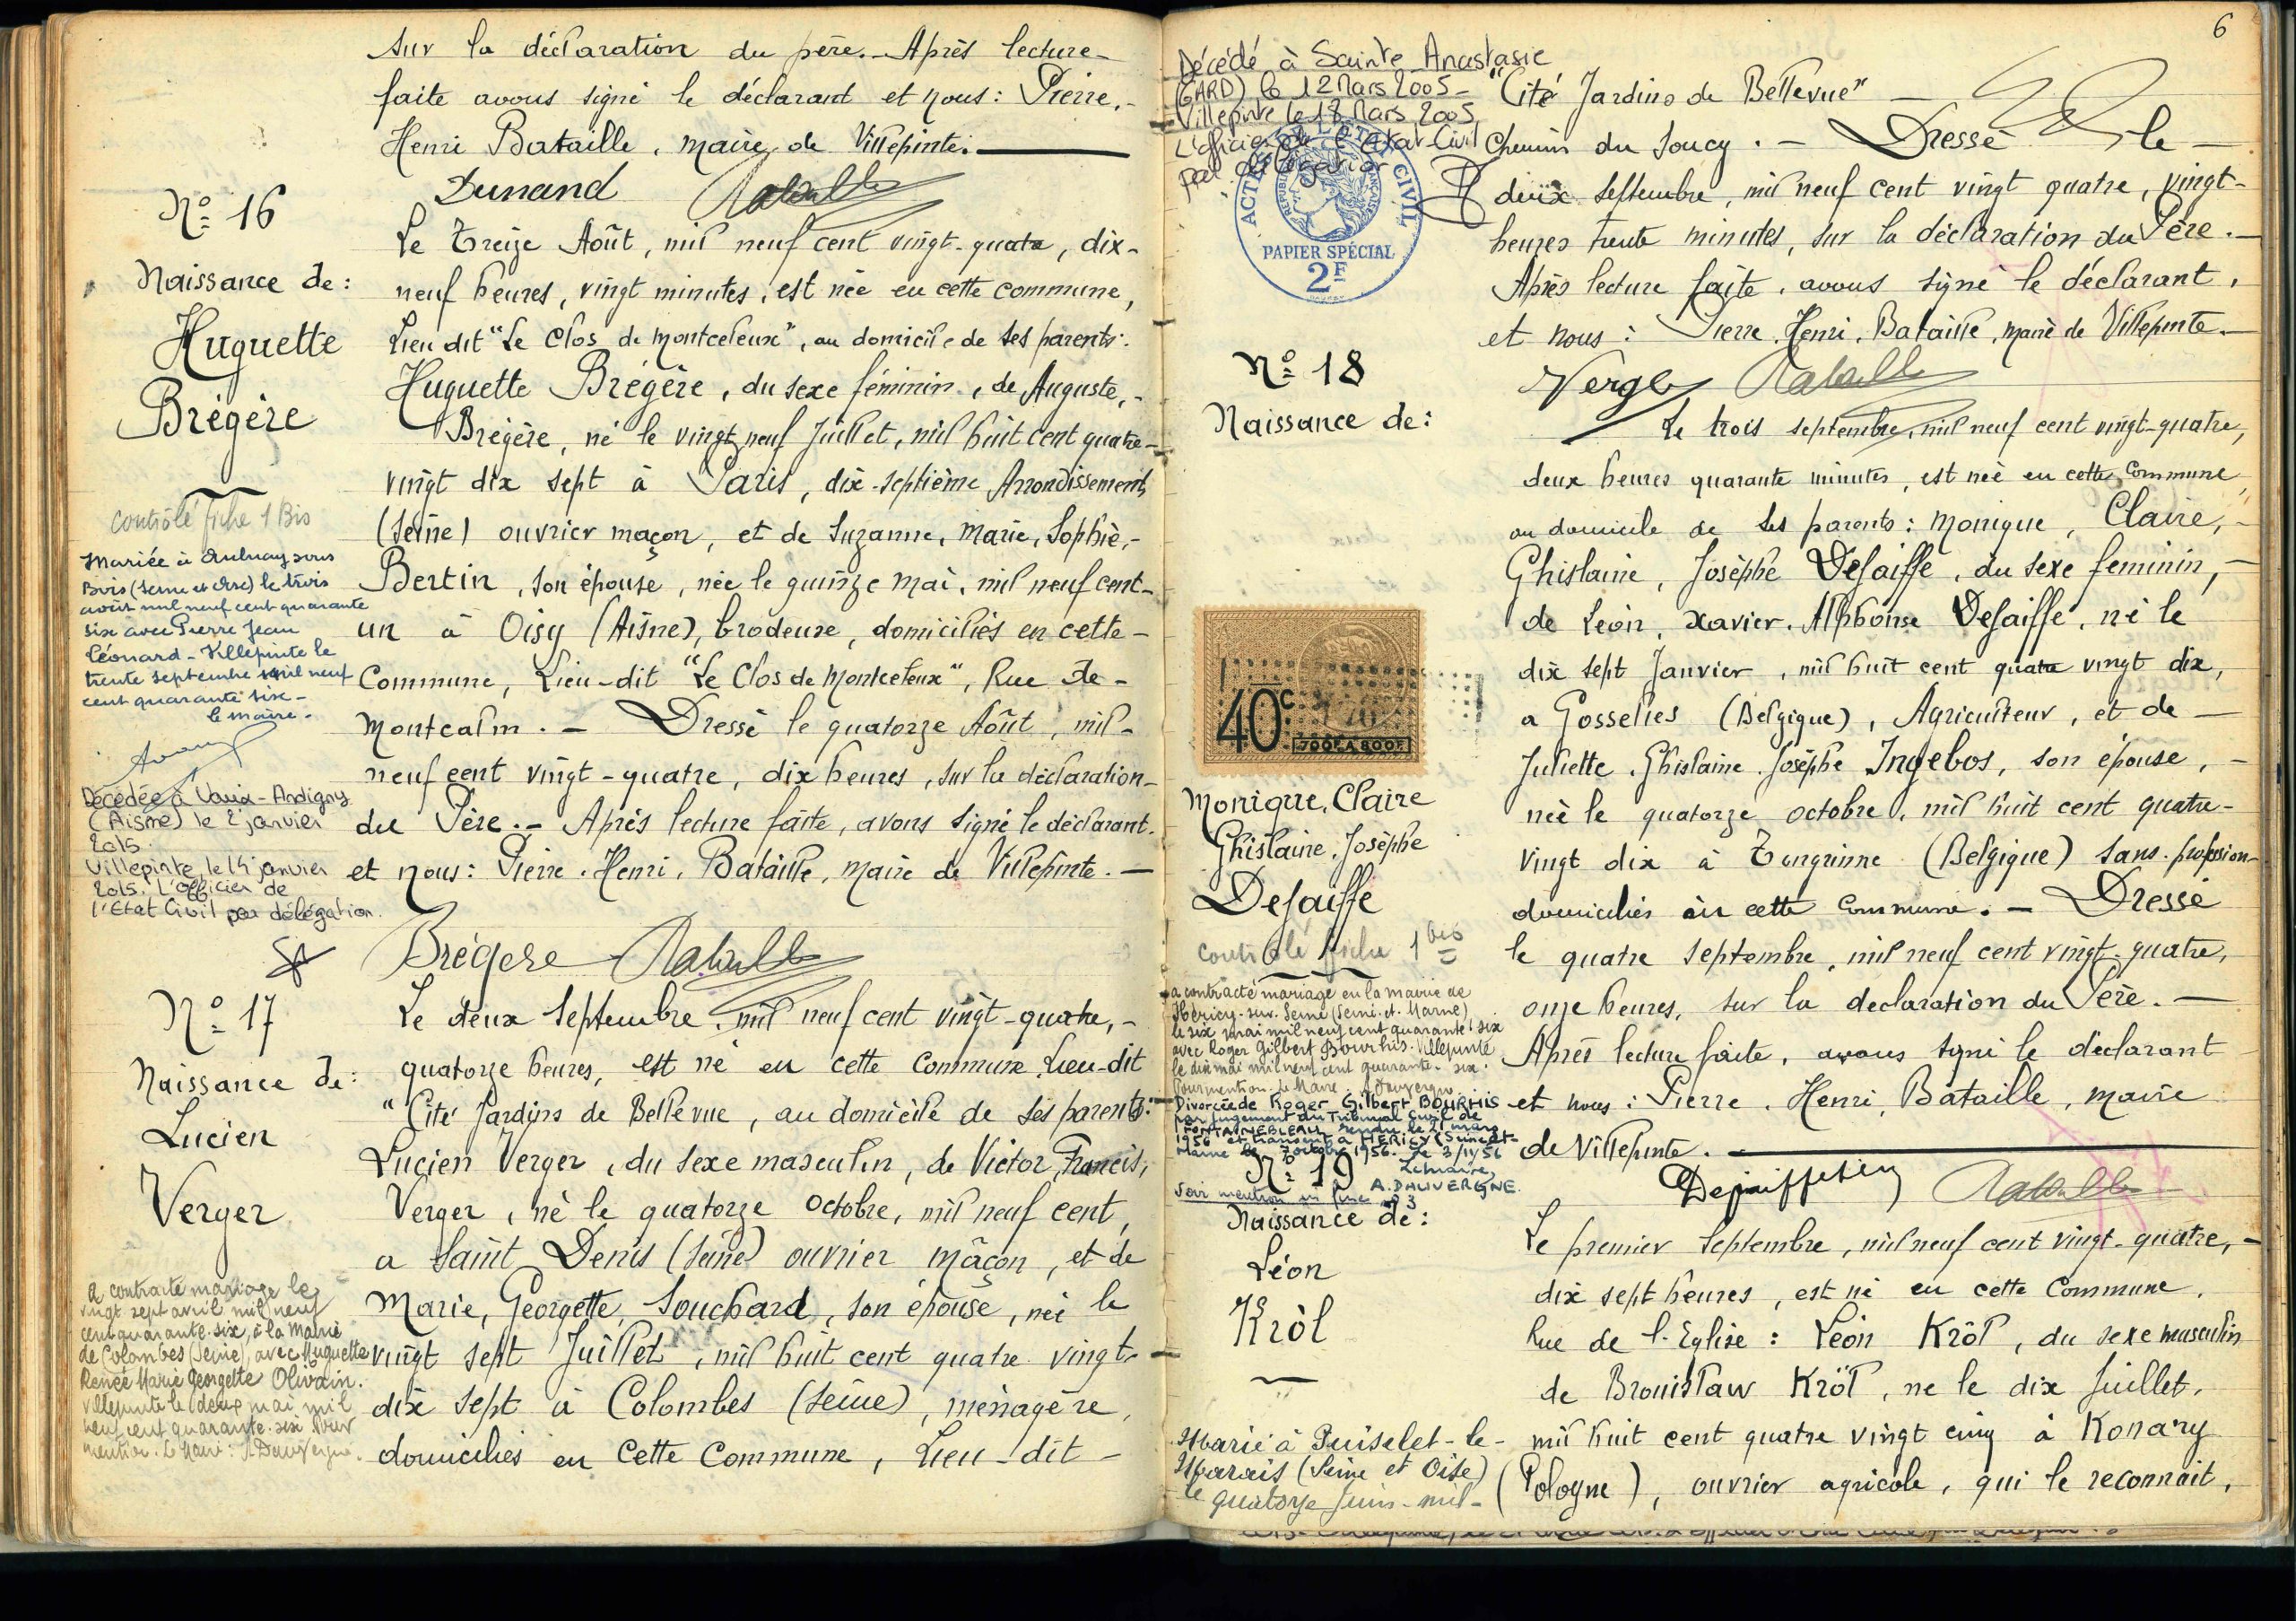 sur la déclaration du père. - Après lecture -
faite avons signé le déclarant et nous : Pierre, -
Henri Bataille, maire de Villepinte.
Dunand
Nº 16
Naissance de :
Huguette
Brégère
contrôlé fiche 1 Bis
Mariée à Aulnay sous
Bois (Seine et Oise) le trois
août mil neuf cent quarante
six avec Pierre Jean
Léonard - Villepinte le
trente septembre mil neuf
cent quarante six -
le maire -
Décédée à Vaux-Andigny
(Aisne) le 2 janvier
2015.
Villepinte, le 14 janvier
2015. L'officier de
l'Etat Civil par délégation.
Le Treize Août, mil neuf cent vingt-quatre, dix-
neuf heures, vingt minutes, est née en cette commune,
Lieu dit "Le Clos de Montceleux", au domicile de ses parents :
Huguette Brégère, du sexe féminin, de Auguste, -
Brégère, né le vingt neuf Juillet, mil huit cent quatre-
vingt dix sept à Paris, dix-septième Arrondissement
(Seine) ouvrier maçon, et de Suzanne, Marie, Sophie, -
Bertin, son épouse, née le quinze mai, mil neuf cent-
un à Oisy (Aisne), brodeuse, domiciliés en cette -
Commune, Lieu-dit "Le Clos de Montceleux", Rue de -
Montcalm. - Dressé le quatorze Août, mil -
neuf cent vingt-quatre, dix heures, sur la déclaration -
du Père. - Après lecture faite, avons signé le déclarant.
et nous : Pierre, Henri, Bataille, maire de Villepinte. -
Brégère
Nº 17
Naissance de :
Lucien
Verger
A contracté mariage le
vingt sept avril mil neuf
cent quarante-six, à la Mairie
de Colombes (Seine), avec Huguette
Renée Marie Georgette Olivain.
Villepinte le deux mai mil
neuf cent quarante-six Pour
mention. Le Maire : A Dauvergne.
Le deux Septembre, mil neuf cent vingt-quatre, -
quatorze heures, est né en cette Commune, Lieu-dit
"Cité Jardins de Bellevue, au domicile de ses parents :
Lucien Verger, du sexe masculin, de Victor, Francis,
Verger, né le quatorze Octobre, mil neuf cent,
a Saint Denis (Seine) ouvrier mâçon, et de
Marie, Georgette, Souchard, son épouse, née le
vingt sept Juillet, mil huit cent quatre vingt-
dix sept à Colombes (Seine), ménagère,
domiciliés en cette Commune, Lieu-dit -
6
Décédé à Sainte Anastasie
(GARD) le 12 Mars 2005 -
Villepinte le 18 Mars 2005
L'officier de l'Etat-Civil
par délégation
ACTES DE L'ÉTAT CIVIL
PAPIER SPÉCIAL
2F
"Cité Jardins de Bellevue"
Chemin du Soucy. - Dressé le -
deux Septembre, mil neuf cent vingt quatre, vingt-
heures trente minutes, sur la déclaration du Père. -
Après lecture faite, avons signé le déclarant,
et nous : Pierre, Henri, Bataille, maire de Villepinte. -
Verger
Nº 18
Naissance de :
40c
700F A 800F
Monique, Claire
Ghislaine, Josèphe
Dejaiffe
contrôlé fiche 1 bis
a contracté mariage en la mairie de
Héricy-sur-Seine (Seine-et-Marne)
le six mai mil neuf cent quarante six
avec Roger Gilbert Bourhis. Villepinte
le dix mai mil neuf cent quarante-six.
Pour mention. Le Maire. A Dauvergne
Divorcée de Roger Gilbert BOURHIS
par jugement du Tribunal Civil de
FONTAINEBLEAU rendu le 21 mars
1956 et transcrit à HERICY (Seine et-
Marne le 7 octobre 1956. Le 3/11/56
Le maire,
A. DAUVERGNE.
Voir mention in fine nº 3
Le trois septembre, mil neuf cent vingt-quatre,
deux heures quarante minutes, est née en cette Commune,
au domicile de ses parents : Monique, Claire, -
Ghislaine, Josèphe Dejaiffe, du sexe feminin, -
de Léon, Xavier, Alphonse Dejaiffe, né le
dix sept Janvier, mil huit cent quatre vingt dix,
a Gosselies (Belgique), Agriculteur, et de -
Juliette, Ghislaine, Josèphe Ingebos, son épouse, -
née le quatorze octobre, mil huit cent quatre-
vingt dix à Tongrinne (Belgique) sans profession -
domiciliés en cette commune. - Dressé
le quatre septembre, mil neuf cent vingt-quatre,
onze heures, sur la declaration du Père. -
Après lecture faite, avons signé le déclarant
et nous : Pierre, Henri, Bataille, maire
de Villepinte.
Nº 19
Naissance de :
Léon
Kròl
Marié à Puiselet-le-
Marais (Seine et Oise)
le quatorze juin - mil -
Le premier Septembre, mil neuf cent vingt-quatre, -
dix sept heures, est né en cette Commune,
Rue de l'Eglise : Léon Kròl, du sexe masculin
de Bronislaw Kròl, ne le dix Juillet,
mil huit cent quatre vingt cinq à Konary
(Pologne), ouvrier agricole, qui le reconnait,